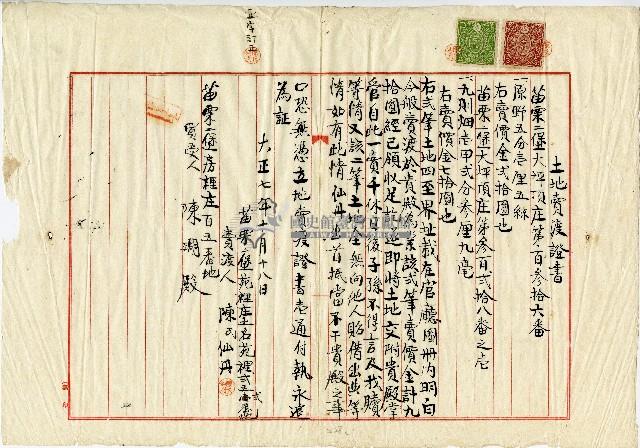 土地賣渡證書
苗栗二堡大坪頂庄第一百参拾六番
一原野五分壱厘五絲
右賣價金弍拾圓也
苗栗二堡大坪頂庄第参百弍拾八番之壱
一九則畑壱甲弍分参厘九毫
右賣價金七拾圓也
右弍筆土地四至界址載在官廳圖册内明白
今般賣渡於貴殿為業該弍筆賣價金計九
拾圓經已領收足訖
遂即將土地交附貴殿掌
管自此一賣千休日後子孫不得言及找贖
等情又該二筆土地並無向他人貽借出典等
情如有此情仙丹出首抵當不干貴殿之事
口恐無憑立地賣渡證書壱通付執永遠
為証
大正七年 月十八日
苗栗二堡苑裡庄土名苑裡
賣渡人
陳 仙丹
苗栗二堡房裡庄百五番地
買受人
陳 湖 殿
國史館臺灣文獻館